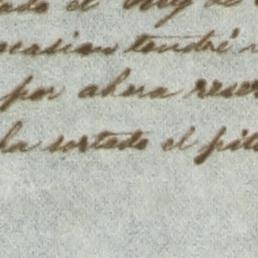 el
ocasion tendré
por ahora reser
la sortado el pil